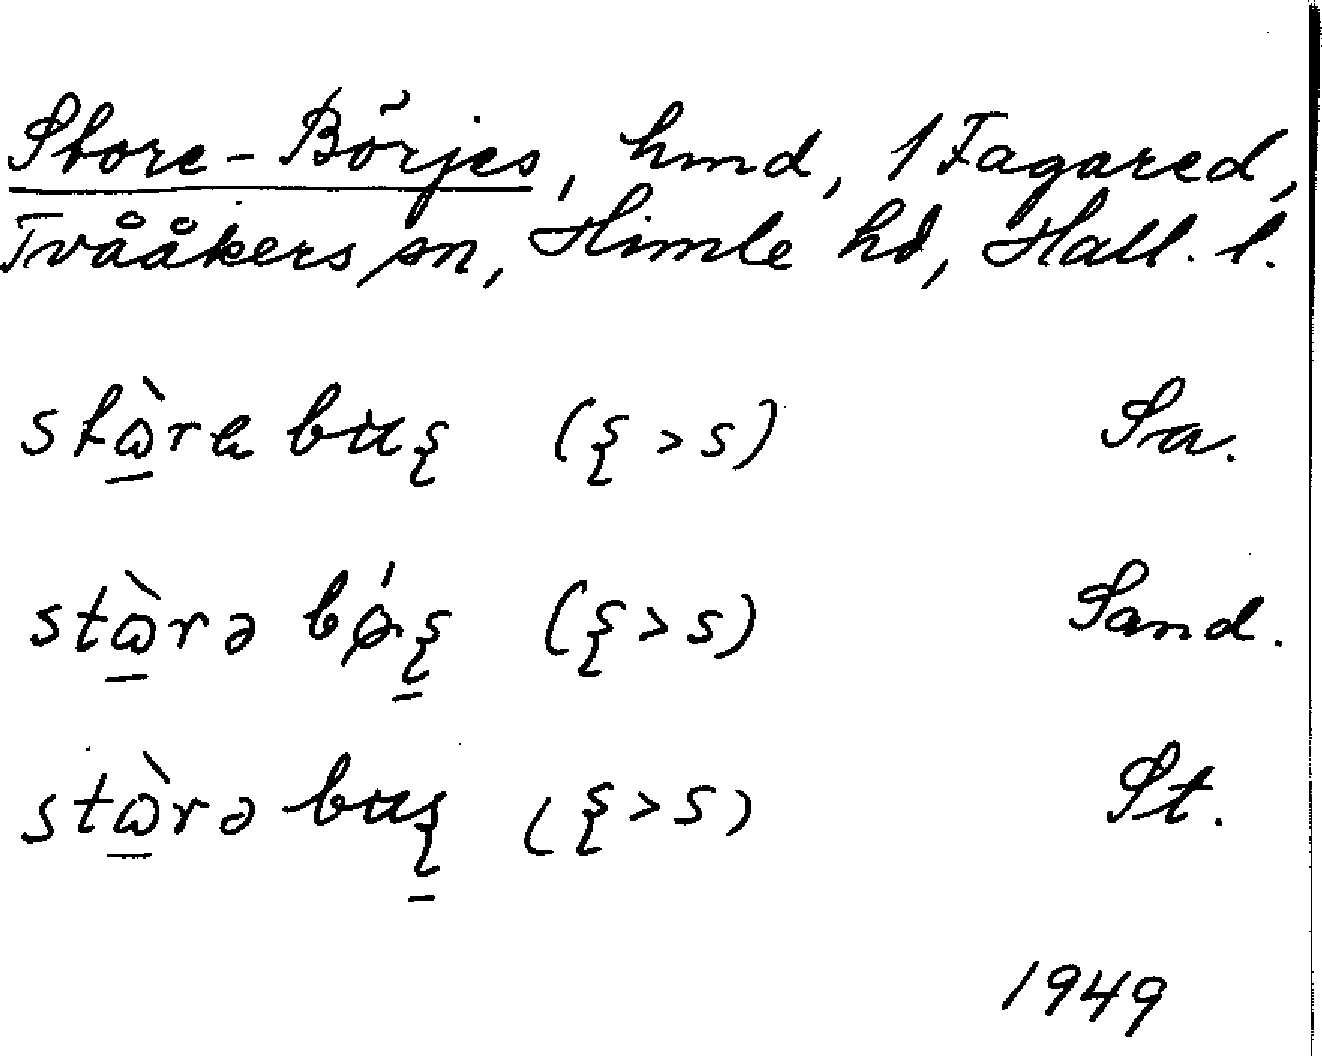 Store-Börjes, hmd, 1 Fagared,
Tvååkers sn, Himle hd, Hall. l.
stὼ̲ra bʉʂ (ʂ > s) Sa.
stὼ̲rə bǿʂ̲ (ʂ > s) Sand.
stὼ̲rə bʉʂ̲ (ʂ > s) St.
1949